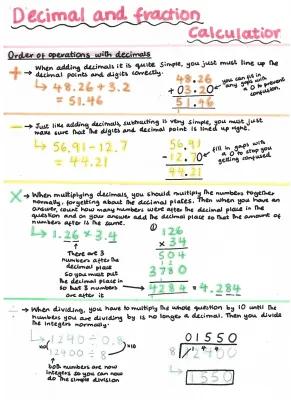 Decimal and fraction
Calculation
Order of operations with decimals
+ → When adding decimals it is quite simple, you just must line up the
decimal points and digits correctly.
↳ 48.26 + 3.2
= 51.46
48.26
+ 03.20
51.46
you can fill in
any gaps with
a 0 to prevent
confusion.
– → Just like adding decimals, subtracting is very simple, you must just
make sure that the digits and decimal point is lined up right.
↳ 56.91 - 12.7
= 44.21
56.91
- 12.70
44.21
fill in gaps with
a 0 to stop you
getting confused
× → When multiplying decimals, you should multiply the numbers together
normally, forgetting about the decimal places. Then when you have an
answer, count how many numbers were after the decimal place in the
question and on your answer add the decimal place so that the amount of
numbers after is the same.
↳ 1.26 × 3.4
There are 3
numbers after the
decimal place
so you must put
the decimal place in
so that 3 numbers
are after it
①
126
× 34
504
3780
4284 = 4.284
÷ → When dividing, you have to multiply the whole question by 10 until the
numbers you are dividing by is no longer a decimal. Then you divide
the integers normally.
↳ 1240 ÷ 0.8
×10 ×10
12400 ÷ 8
both numbers are now
integers so you can now
do the simple division
01550
8 12400
1550